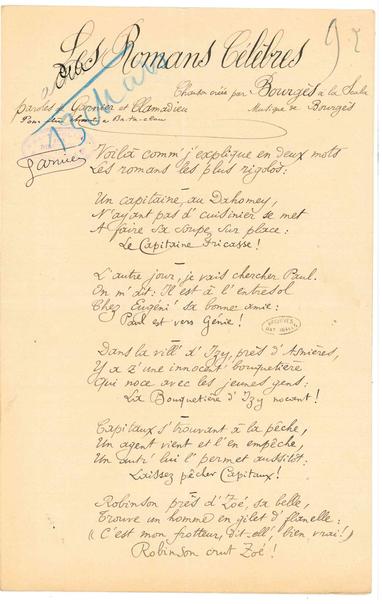 Les Romans Célèbres
92
Chanson créée par Bourgès à la Scala
paroles de Garnier et Clamadieu
Musique de Bourgès
Pour être chanté à Ba-ta-clan
Garnier
Voilà comm' j'explique en deux mots
Les romans les plus rigolos :
Un capitaine, au Dahomey,
N'ayant pas d' cuisinier se met
A faire sa soupe sur place :
Le Capitaine Fricasse !
L'autre jour, je vais chercher Paul.
On m' dit : Il est à l'entresol
Chez Eugéni' sa bonne amie :
Paul est vers Génie !
Dans la vill' d'Izy, près d'Asnières,
Y a z'une innocent' bouquetière
Qui noce avec les jeunes gens :
La Bouquetière d'Izy nocent !
Capitaux s'trouvant à la pêche,
Un agent vient et l'en empêche,
Un autr' lui l'permet aussitôt :
Laissez pêcher Capitaux !
Robinson près d'Zoé, sa belle,
Trouve un homme en gilet d'flanelle :
(C'est mon frotteur, dit-ell', bien vrai !)
Robinson crut Zoé !